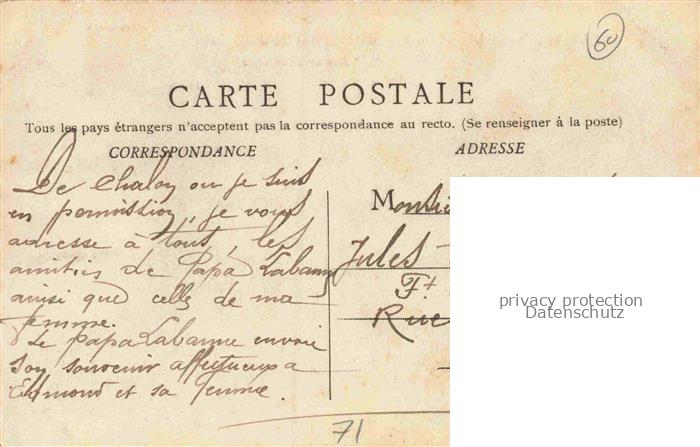 60
CARTE POSTALE
Tous les pays étrangers n'acceptent pas la correspondance au recto. (Se renseigner à la poste)
CORRESPONDANCE
ADRESSE
De Chalon ou je suis
en permission, je vous
adresse à tous, les
amitiés de Papa Labanne
ainsi que celle de ma
femme.
Le papa Labanne envoie
son souvenir affectueux a
Edmond et sa femme.
Monsie
Jules
Ft
Rue
privacy protection
Datenschutz
71